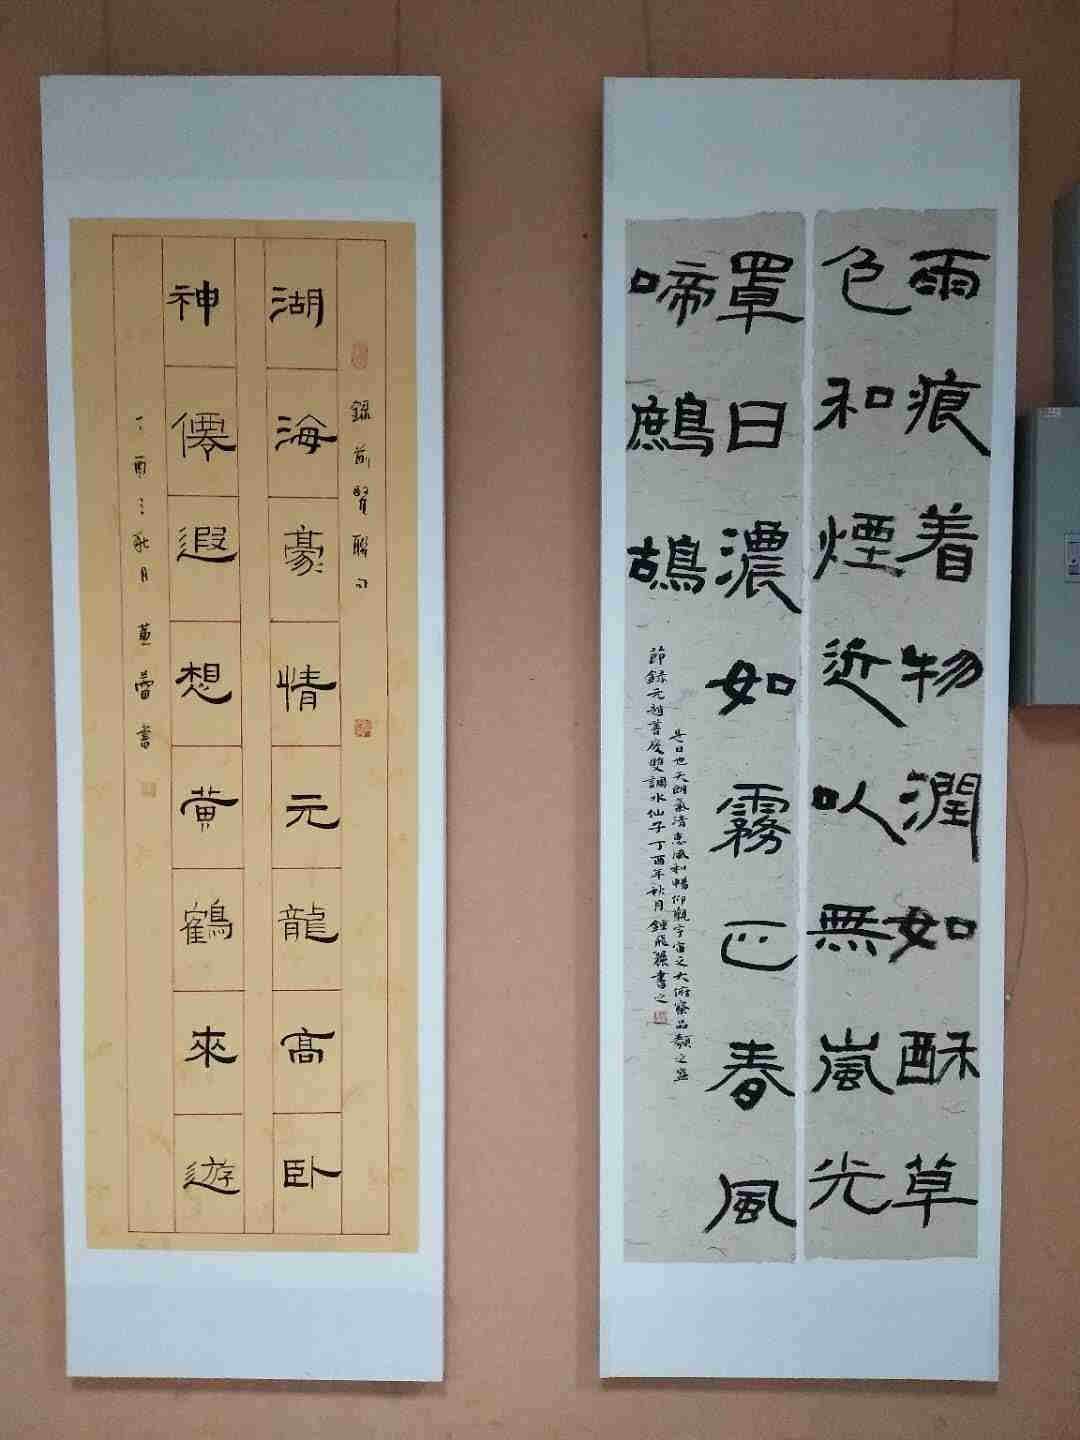 雨痕着物潤如酥草
色和煙近以無嵐光
罩日濃如霧正春風
啼鷓鴣
是日也天朗氣清惠風和暢仰觀宇宙之大俯察品類之盛
節錄元趙善慶雙調水仙子丁酉年秋月鍾飛書之
錄前賢聯句
湖海豪情元龍高臥
神僊遐想黃鶴來遊
丁酉之秋月蕾書